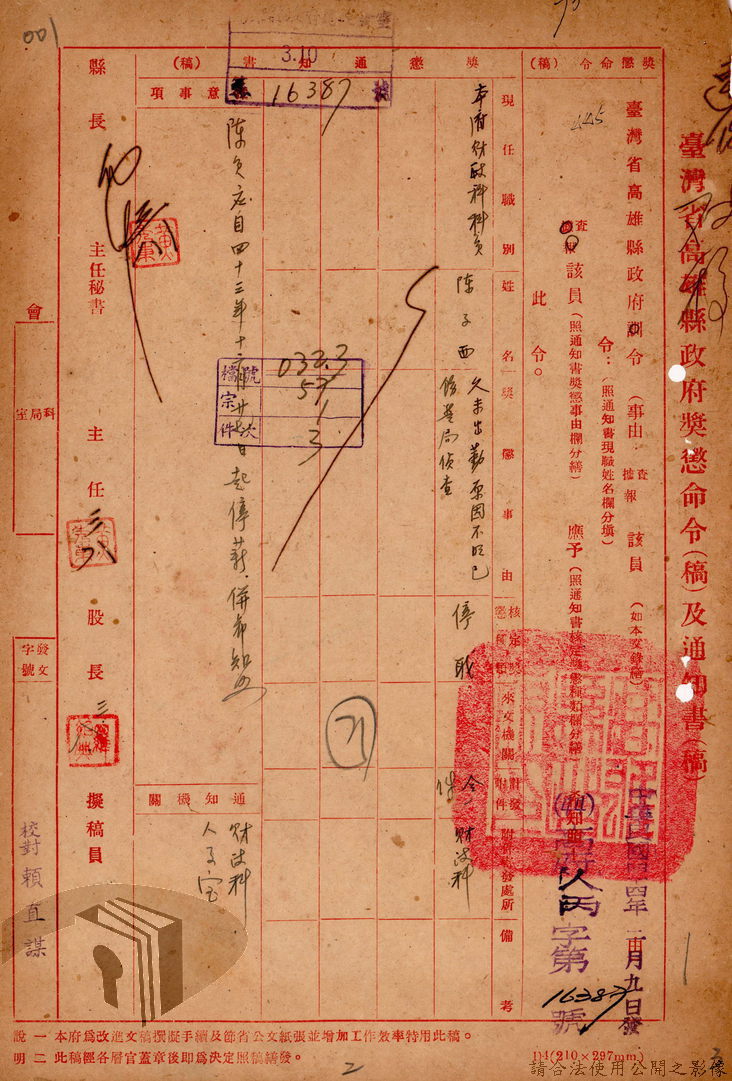 臺灣省高雄縣政府獎懲命令(稿)及通知書(稿)
中華民國四四年
月九日發
(44)
人丙字第
16387
號
獎懲命令(稿)
445
臺灣省高雄縣政府訓令(事由:據查報該員(如本文錄繕)
令:(照通知書現職姓名欄分填)
查
報該員(照通知書獎懲事由欄分繕)應予(照通知書核定獎懲種類欄分繕)
此令。
獎懲通知書(稿)
現任職別
姓名
獎懲事由
核定獎懲種類
來文機關
附發附件
附件發處所
備考
本府財政科科員
陳子西
久未出勤原因不明已
偵查
停職
財政科
3.10
16387
檔號
0323
57
宗
1
件次
3
71
注意事項
陳員應自四十三年十
日起停薪.併希知照
通知機關
財政科
人事室
縣長
主任秘書
主任
三八
股長
擬稿員
會
科局室
發文字號
校對賴直謀
說一本府為改進文稿撰擬手續及節省公文紙張並增加工作效率特用此稿。
明二此稿經各層官蓋章後即為決定照稿繕發。
D4(210×297mm)
001
2
請合法使用公開之影像